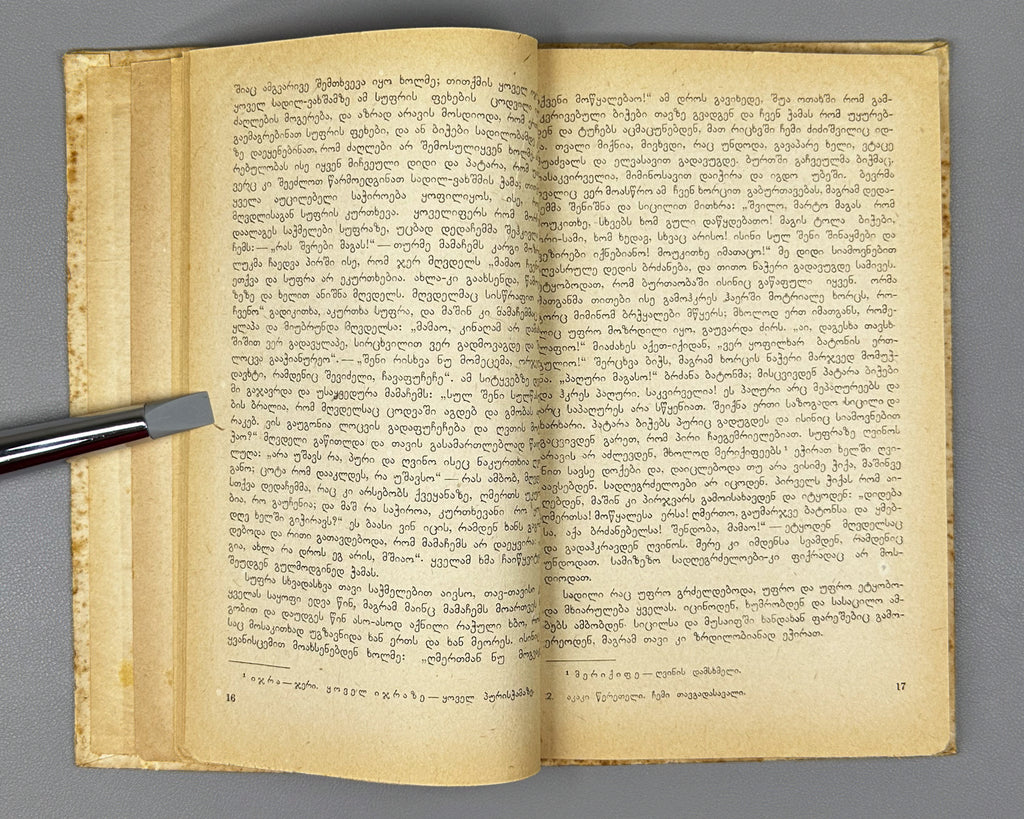 შიაც ამგვარივე შემთხვევა იყო ხოლმე; თითქმის ყოველ
ყოველ სადილ-ვახშამზე ამ სუფრის ფეხების ცოდვილი
ძაღლების მოგერება, და აზრად არავის მოსდიოდა, რომ
გაემაგრებინათ სუფრის ფეხები, და ან ბიჭები სადილობამდე
ზე დაეყენებინათ, რომ ძაღლები არ შემოსულიყვნენ ხოლმე
რებულობას ისე იყვნენ მიჩვეული დიდი და პატარა, რომ
ვერც კი შეეძლოთ წარმოედგინათ სადილ-ვახშმის ჭამა;
ყველა აუცილებელი საჭიროება ყოფილიყოს, ისე,
მღვდლისაგან სუფრის კურთხევა. ყოველიფერს რომ
დაალაგეს საჭმელები სუფრაზე, უცბად დედაჩემმა შეჰკივლა
ჩემს: — „რას შვრები მაგას!“ — თურმე მამაჩემს კარგი
ლუკმა ჩაედვა პირში ისე, რომ ჯერ მღვდელს „მამაო
ეთქვა და სუფრა არ ეკურთხებია. ახლა-კი გაახსენდა,
ზეზე და ხელით ანიშნა მღვდელს. მღვდელმაც სისწრაფით
ჩვენო“ გადიკითხა, აკურთხა სუფრა, და მაშინ კი მამაჩემმაც
ყლაპა და მიუბრუნდა მღვდელსა: „მამაო, კინაღამ არ
შიშით ვერ გადავყლაპე, სირცხვილით ვერ გადმოვაგდე და
ლოცვა გააჭიანურეო“. — „შენი რისხვა ნუ მომეცემა,
დავხტი, რამდენიც შევიძელი, ჩავაფუჩეჩე“. ამ სიტყვებზე
მი გაჯავრდა და უსაყვედურა მამაჩემს: „სულ შენი
ბის ბრალია, რომ მღვდელსაც ცოდვაში აგდებ და გმობას
რაკებ. ვის გაუგონია ლოცვის გადაფუჩეჩება და ღვთის
ჭაო?“ მღვდელი გაწითლდა და თავის გასამართლებლად
ლულა: „არა უშავს რა, პური და ღვინო ისეც ნაკურთხია
განო; ცოტა რომ დააკლდეს, რა უშავსო“ — რას ამბობ,
სთქვა დედაჩემმა, რაც კი არსებობს ქვეყანაზე, ღმერთს
ბია, რო გაუჩენია; და მაშ რა საჭიროა, კურთხევანი რო
დღე ხელში გიჭირავს?“ ეს ბაასი ვინ იცის, რამდენ ხანს
დებოდა და რითი გათავდებოდა, რომ მამაჩემს არ დაეყვირა:
გია, ახლა რა დროს ეგ არის, მშიაო“. ყველამ ხმა ჩაიწყვიტა
შეუდგენ გულმოდგინედ ჭამას.
სუფრა სხვადასხვა თავი საჭმელებით აივსო, თავ-თავისი
ყველას საყოფი ედვა წინ, მაგრამ მაინც მამაჩემს მოართვეს
გობით და დაუდგეს წინ ასო-ასოდ აქნილი რაჭული ხბო,
საც მოსაკითხად უგზავნიდა ხან ერთს და ხან მეორეს.
ყვანისცემით მოახსენებდენ ხოლმე: „ღმერთმან ნუ
¹ იჯრა — ჯერი. ყოველ იჯრაზე — ყოველ პურისჭამაზე
16
ქვენი მოწყალებაო!“ ამ დროს გავიხედე, შუა ოთახში რომ გამ-
კვრივებული ბიჭები თავზე გვადგენ და ჩვენ ჭამას რომ უყურებ-
დენ და ტუჩებს აცმაცუნებდენ, მათ რიცხვში ჩემი ძიძიშვილიც იდ-
ა. თვალი მიქნია, მივხვდი, რაც უნდოდა, გავაპარე ხელი, ვტაცე
და ელვასავით გადავუგდე. ბურთში გაჩვეულმა ბიჭმაც,
საკვირველია, მიმინოსავით დაიჭირა და იგდო უბეში. ბევრმა
ვალიც ვერ მოასწრო ამ ჩვენ ხორცით გაბურთავებას, მაგრამ დედა-
ემმა შენიშნა და სიცილით მითხრა: „შვილო, მარტო მაგას რომ
მოუკითხე, სხვებს ხომ გული დაწყდებათო! მაგის ტოლა ბიჭები,
რი-სამი, ხომ ხედავ, სხვაც არისო! ისინი სულ შენი შინაყმები და
ვეზირები იქნებიანო! მოუკითხე იმათაცო!“ მე დიდი სიამოვნებით
ღვასრულე დედის ბრძანება, და თითო ნაჭერი გადავუგდე სამივეს.
ეტყობოდათ, რომ ბურთაობაში ისინიც გაწაფული იყვენ. ორმა
მათგანმა თითები ისე გამოჰკრეს ჰაერში მოტრიალე ხორცს, რო-
გორც მიმინომ ბრჭყალები მწყერს; მხოლოდ ერთ იმათგანს, რომე-
ლიც უფრო მოზრდილი იყო, გაუვარდა ძირს. „აი, დაგესხა თავსხ-
ლაფიო!“ მიაძახეს აქეთ-იქიდან, „ვერ ყოფილხარ ბატონის ერთ-
გულიო!“ შერცხვა ბიჭს, მაგრამ ხორცის ნაჭერი მარჯვედ მომუჭ-
და. „პაღური მაგასო!“ ბრძანა ბატონმა; მისცვივდენ პატარა ბიჭები
და ჰკრეს პაღური. საკვირველია! ეს პაღური არც მეპაღურეებს და
არც საპაღურეს არ სწყენიათ. შეიქნა ერთი საზოგადო სიცილი და
ხარხარი. პატარა ბიჭებს პურიც გადუგდეს და ისინიც სიამოვნებით
გაცვივდენ გარეთ, რომ პირი ჩაეგემრიელებიათ. სუფრაზე ღვინოს
არავის არ აძლევდენ, მხოლოდ მერიქიფეებს¹ ეჭირათ ხელში ღვი-
ნით სავსე დოქები და, დაიცლებოდა თუ არა ვისიმე ჭიქა, მაშინვე
აავსებდენ. სადღეგრძელოები არ იცოდენ. პირველს ჭიქას რომ აი-
ღებდენ, მაშინ კი პირჯვარს გამოისახავდენ და იტყოდენ: „დიდება
ღმერთსა! მოწყალესა ერსა! ღმერთო, გაუმარჯვე ბატონსა და ყმებ-
სა, აქა ბრძანებელსა! შენდობა, მამაო!“ — ეტყოდენ მღვდელსაც
და გადაჰკრავდენ ღვინოს. მერე კი იმდენსა სვამდენ, რამდენიც
უნდოდათ. სამიზეზო სადღეგრძელოები-კი ფიქრადაც არ მოს-
დიოდათ.
სადილი რაც უფრო გრძელდებოდა, უფრო და უფრო ეტყობო-
და მხიარულება ყველას. იცინოდენ, ხუმრობდენ და სასაცილო ამ-
ბებს ამბობდენ. სიცილსა და მუსაიფში ხანდახან ფარეშებიც გამო-
ერეოდენ, მაგრამ თავი კი ზრდილობიანად ეჭირათ.
¹ მერიქიფე — ღვინის დამსხმელი.
2. აკაკი წერეთელი. ჩემი თავგადასავალი.
17